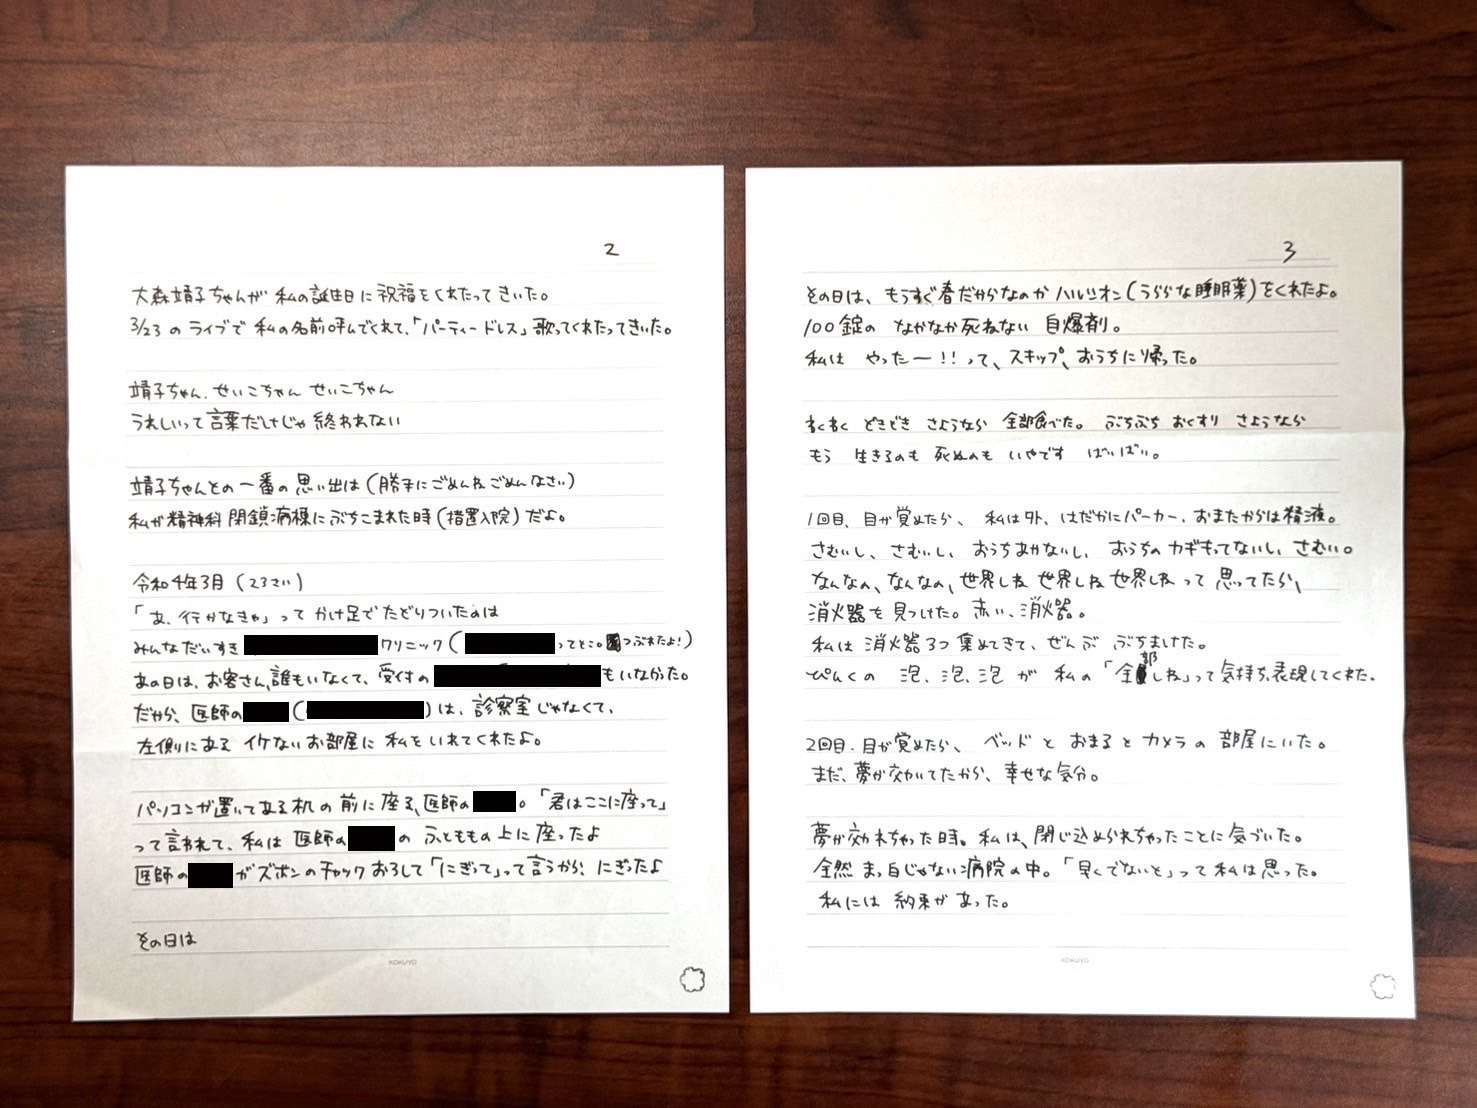 2
大森靖子ちゃんが 私の誕生日に 祝福をくれたってきいた。
3/23 のライブで 私の名前呼んでくれて、「パーティードレス」歌ってくれたってきいた。
靖子ちゃん、せいこちゃん せいこちゃん
うれしいって言葉だけじゃ 終われない
靖子ちゃんとの一番の思い出は(勝手にごめんねごめんなさい)
私が精神科閉鎖病棟にぶちこまれた時(措置入院)だよ。
令和4年3月(23さい)
「あ、行かなきゃ」って かけ足でたどりついたのは
みんなだいすき クリニック( ってとこ。つぶれたよ!)
あの日は、お客さん、誰もいなくて、受付の もいなかった。
だから、医師の ( )は、診察室じゃなくて、
左側にある イケないお部屋に 私をいれてくれたよ。
パソコンが置いてある机の 前に座る、医師の 。「君はここに座って」
って言われて、私は 医師の の ふとももの上に座ったよ
医師の がズボンのチャックおろして「にぎって」って言うから、にぎったよ
その日は
KOKUYO
3
その日は、もうすぐ春だからなのか ハルシオン(うららな睡眠薬)をくれたよ。
100錠の なかなか死ねない 自爆剤。
私は やったー!!って、スキップ、おうちに帰った。
わくわく どきどき さようなら 全部食べた。 ぷちぷち おくすり さようなら
もう 生きるのも 死ぬのも いやです ばいばい。
1回目、目が覚めたら、 私は外、はだかにパーカー、おまたからは精液。
さむいし、さむいし、おうちあかないし、おうちのカギもってないし、さむい。
なんなの、なんなの、世界しね 世界しね 世界しねって 思ってたら、
消火器を見つけた。赤い、消火器。
私は 消火器3つ 集めてきて、ぜんぶ ぶちました。
ぴんくの 泡、泡、泡 が 私の「全部しね」って気持ち、表現してくれた。
2回目、目が覚めたら、 ベッドとおまるとカメラの部屋にいた。
まだ、夢が効いてたから、幸せな気分。
夢が効れちゃった時。私は、閉じ込められちゃったことに気づいた。
全然まっ白じゃない病院の中。「早くでないと」って私は思った。
私には 約束があった。
KOKUYO